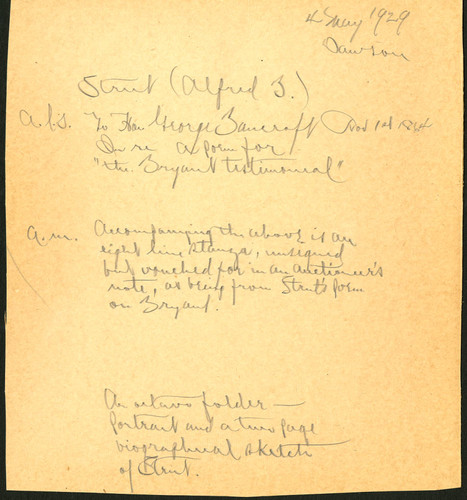 4 May 1929
Dawson
Strut (Alfred B.)
a.l.s. To Hon. George Bancroft Nov 1st 1864
In re a poem for
"the Bryant testimonial"
a.m. Accompanying the above is an
eight line stanza, unsigned
but vouched for in an auctioneer's
note, as being from Strut's poem
on Bryant.
An octavo folder —
portrait and a two page
biographical sketch
of Strut.